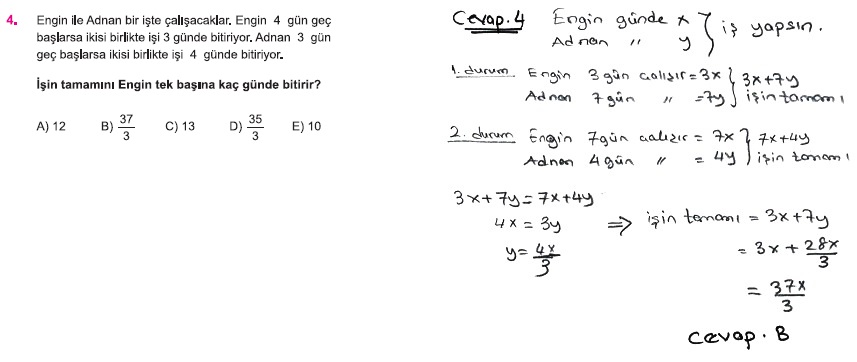 4. Engin ile Adnan bir işte çalışacaklar. Engin 4 gün geç
başlarsa ikisi birlikte işi 3 günde bitiriyor. Adnan 3 gün
geç başlarsa ikisi birlikte işi 4 günde bitiriyor.
İşin tamamını Engin tek başına kaç günde bitirir?
A) 12 B) 37/3 C) 13 D) 35/3 E) 10
Cevap.4 Engin günde x
Adnan " y } iş yapsın.
1. durum Engin 3 gün çalışır = 3x } 3x+7y
Adnan 7 gün " = 7y } işin tamamı
2. durum Engin 7 gün çalışır = 7x } 7x+4y
Adnan 4 gün " = 4y } işin tamamı
3x+7y = 7x+4y
4x = 3y
y = 4x/3
⇒ işin tamamı = 3x+7y
= 3x + 28x/3
= 37x/3
Cevap. B